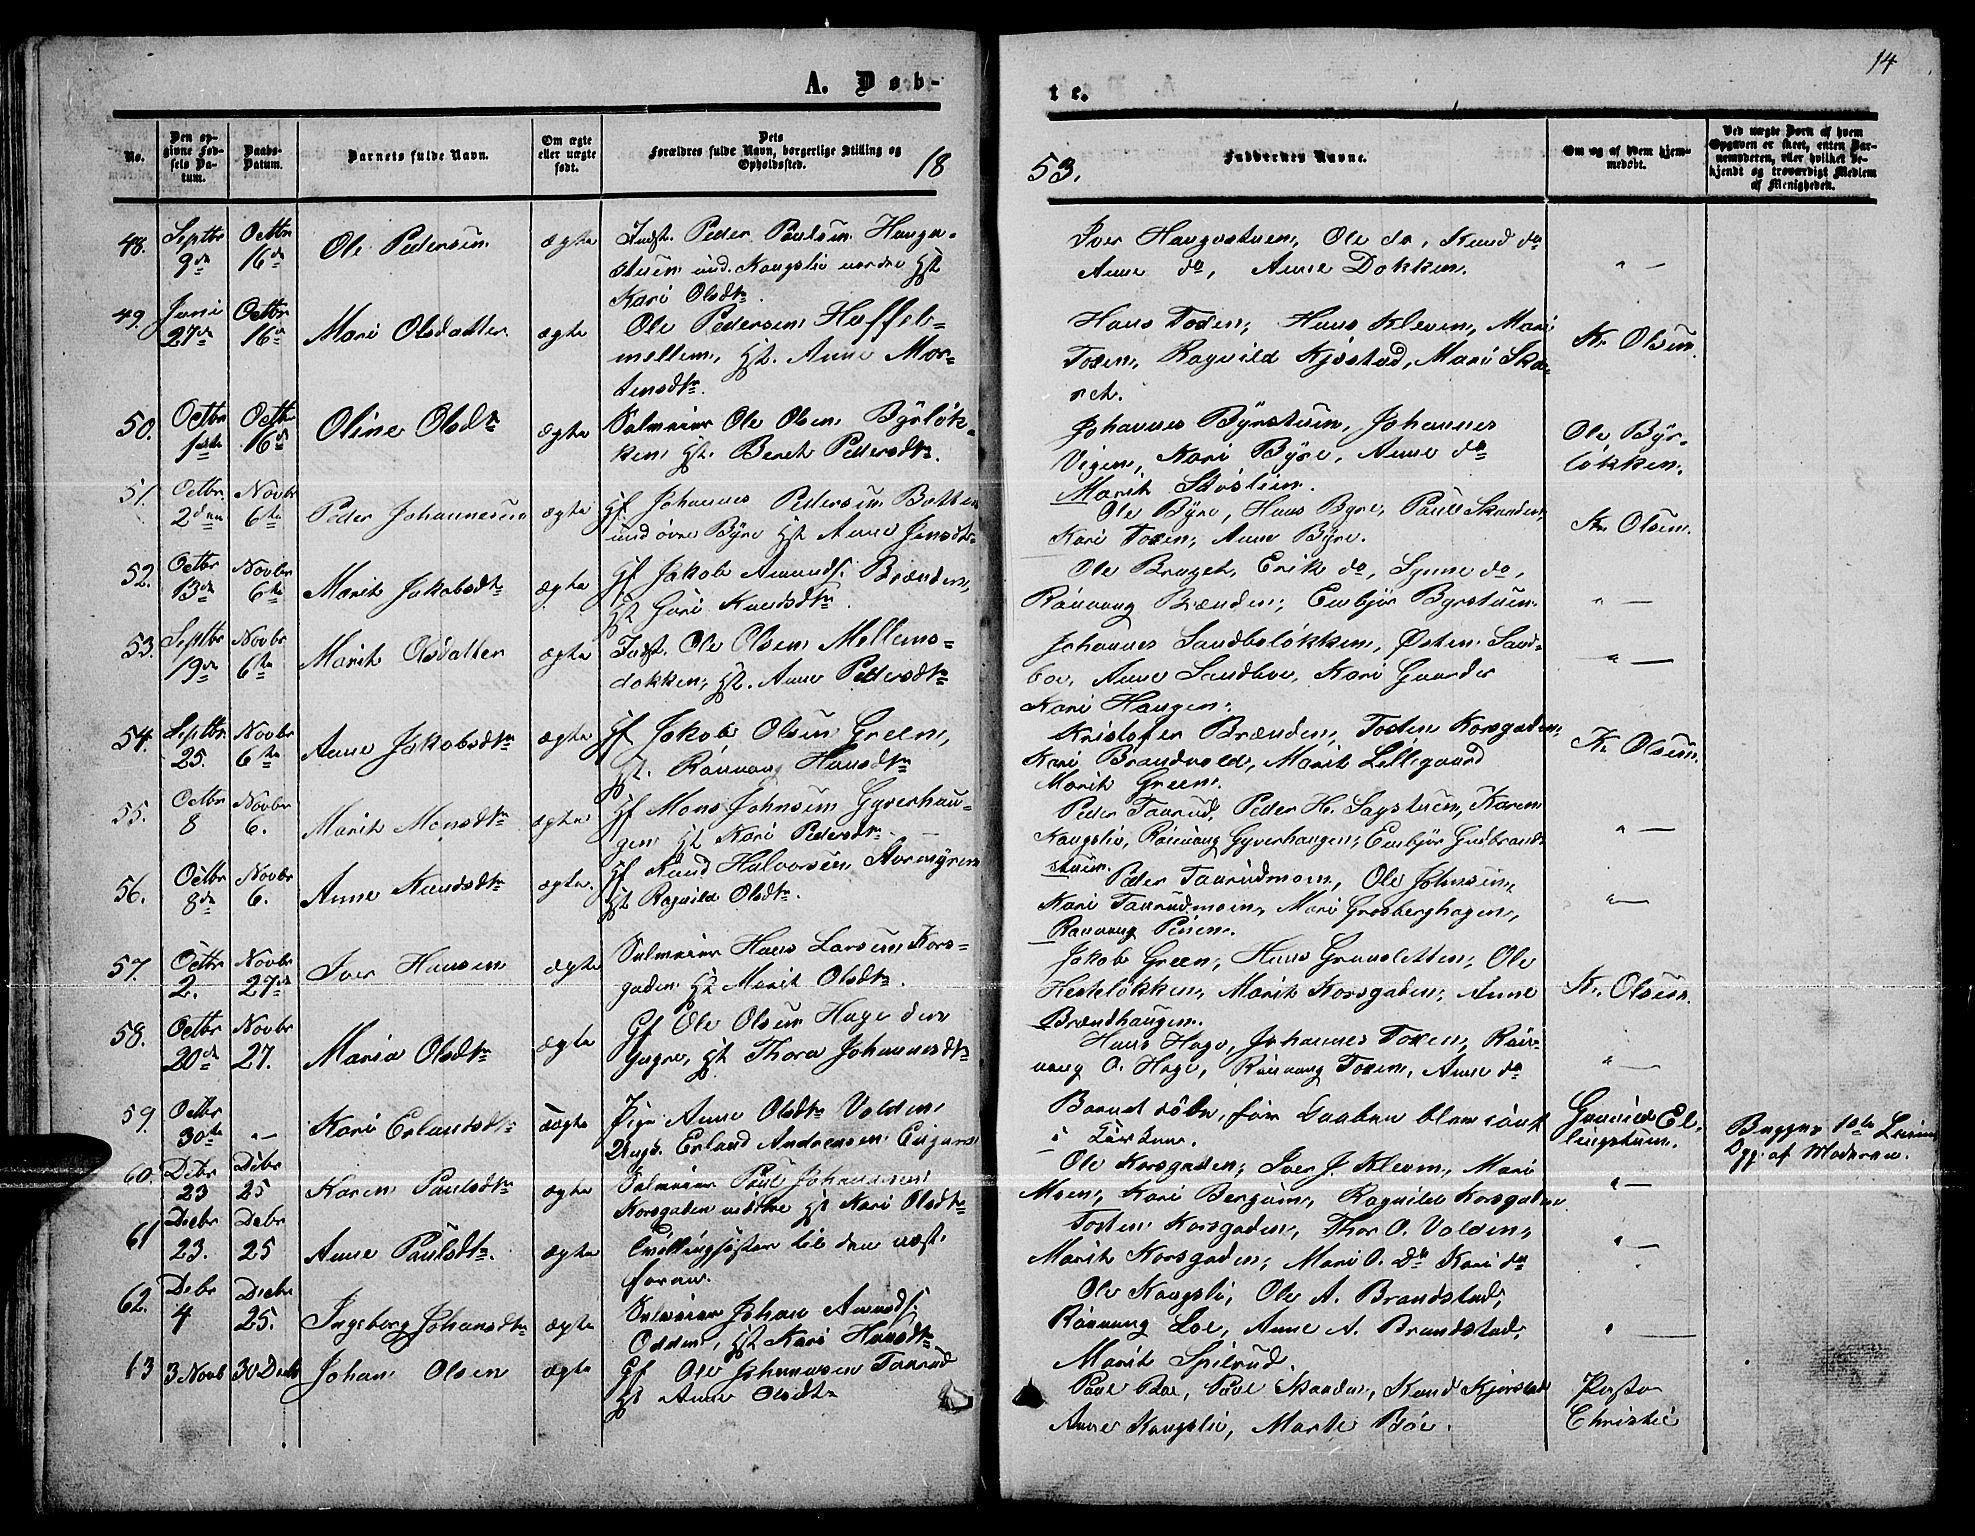 14
A. Døb-
te.
No.
Den op-
givne Fød-
sels Da-
tum.
Daabs-
Datum.
Barnets fulde Navn.
Om ægte
eller uægte
født.
Dets
Forældres fulde Navn, borgerlige Stilling og
Opholdssted.
18
53.
Faddernes Navne.
Om og af hvem hjem-
medøbt.
Ved uægte Børn af hvem
Opgaven er skeet, enten Bar-
nemoderen, eller hvilket be-
kjendt og troværdigt Medlem
af Menigheden.
48. Septbr 9de Octbr 16de Ole Pedersen ægte Indst. Peder Paulsen Hauga-
stuen und. Kongsli nordre Hst
Kari Olsdtr.
Iver Haugastuen, Ole do, Knud do
Anne do, Anne Dokken.
" —
49. Juni 27de Octbr 16de Mari Olsdatter ægte Ole Pedersen Haffeb-
mellem, Hst. Anne Mor-
tensdtr.
Hans Toxen, Hans Kleven, Mari
Toxen, Ragnild Kjøstad, Mari Ska-
ret.
Kr. Olsen.
50. Octbr 1ste Octbr 16de Oline Olsdtr ægte Selveier Ole Olsen Byrløk-
ken Hst. Bereth Pedersdtr.
Johannes Byrstuen, Johannes
Vigen, Kari Byre, Anne do
Marit Stoslien.
Ole Byr-
løkken.
51. Octbr 2den Novbr 6te Peder Johannesen ægte Gf Johannes Pedersen Botten
und øvre Byre Hst Anne Jensdtr
Ole Byre, Hans Byre, Paul Skanden,
Kari Toxen, Anne Byre.
Kr. Olsen.
52. Octbr 13de Novbr 6te Marit Jakobsdtr ægte Gf Jakob Amunds. Brænden,
Hst Guri Knudsdtr.
Ole Bruget, Erik do, Synne do,
Rønnaug Brænden, Embjør Byrstuen.
" —
53. Septbr 19de Novbr 6te Marit Olsdatter ægte Indst. Ole Olsen Mellems-
dokken, Hst. Anne Pedersdtr
Johannes Sandboløkken, Østen Sand-
boe, Anne Sandboe, Kari Gaarder
Kari Haugen.
" —
54. Septbr 25. Novbr 6te Anne Jakobsdtr ægte Gf Jakob Olsen Green,
Hst. Rønnaug Hansdtr
Kristofer Brænden, Tosten Korsgaden,
Kari Brandvold, Marit Lillegaard
Marit Green.
Kr. Olsen.
55. Octbr 8 Novbr 6. Marit Monsdtr ægte Gf Mons Johnsen Gyverhau-
gen Hst Kari Pedersdtr. —
Peder Taarud, Peder H. Sagstuen, Karen
Kongsli, Rønnaug Gyverhaugen, Embjør Gudbrand-
stuen.
" —
56. Octbr 8de Novbr 6. Anne Knudsdtr ægte. Gf Knud Halvorsen Stormyren
Hst Ragnild Olsdtr.
Peder Taarudmoen, Ole Johnsen,
Kari Taarudmoen, Mari Grosberghagen,
Rønnaug Pisen.
" —
57. Octbr 2. Novbr 27de Iver Hansen ægte Selveier Hans Larsen Kors-
gaden Hst Marit Olsdtr.
Jakob Green, Hans Gransletten, Ole
Hesteløkken, Marit Korsgaden, Anne
Brændhaugen.
Kr. Olsen.
58. Octbr 20de Novbr 27. Maria Olsdtr ægte Gf Ole Olsen Hage den
Yngre, Hst Thora Johannesdtr
Hans Hage, Johannes Toxen, Røn-
naug O. Hage, Rønnaug Toxen, Anne do
"
59. Octbr 30te — Kari Erlandsdtr uægte Pige Anne Olsdtr Volden
Ungk. Erland Andreasen
Barnet døde, før Daaben blev
i Kirken.
Gunnild El-
lingstuen.
Begges 1ste Leier
Opg. af Moderen.
60. Debr 23 Debr 25 Karen Paulsdtr ægte Selveier Paul Johannesen
Korsgaden nedre Hst Kari Olsdtr
Ole Korsgaden, Iver J Kleven, Mari
Moen, Kari Bergum, Ragnild Korsgaden
" —
61 Debr 23. Debr 25 Anne Paulsdtr. ægte Tvillingsøster til den næst
foran.
Tosten Korsgaden, Thor O. Volden,
Marit Korsgaden, Mari O. Do Kari do
" —
62. Debr 4 Debr 25. Ingeborg Johansdtr ægte Selveier Johan Amunds.
Odden, Hst Kari Hansdtr
Ole Kongsli, Ole A. Brandstad,
Rønnaug Loe, Anne A. Brandstad,
Marit Spilrud.
" —
63 3 Novb 30 Decb Johan Olsen ægte Gf Ole Johannesen Taarud
Hst Anne Olsdtr
Paul Boe, Paul Skanden, Knud Kjørstad
Anne Kongsli, Marte Bøe.
Pastor
Christie